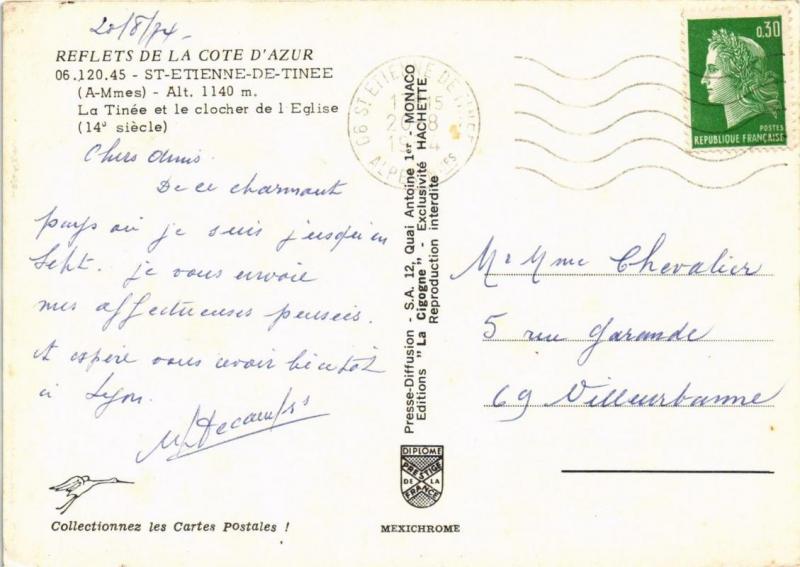 20/8/74.
REFLETS DE LA COTE D'AZUR
06.120.45 - ST-ETIENNE-DE-TINEE
(A-Mmes) - Alt. 1140 m.
La Tinée et le clocher de l'Eglise
(14e siècle)
Chers Amis.
De ce charmant
pays où je suis jusqu'en
Sept. je vous envoie
mes affectueuses pensées.
et espère vous avoir bientôt
à Lyon.
Collectionnez les Cartes Postales !
Presse-Diffusion - S.A. 12, Quai Antoine 1er - MONACO
Editions "La Cigogne" - Exclusivité HACHETTE
Reproduction interdite
DIPLOME
PRESTIGE
DE LA
FRANCE
MEXICHROME
06 ST ETIENNE DE TINEE
20-8
ALPES
0,30
POSTES
REPUBLIQUE FRANÇAISE
Mr Mme Chevalier
5 rue Garande
69 Villeurbanne